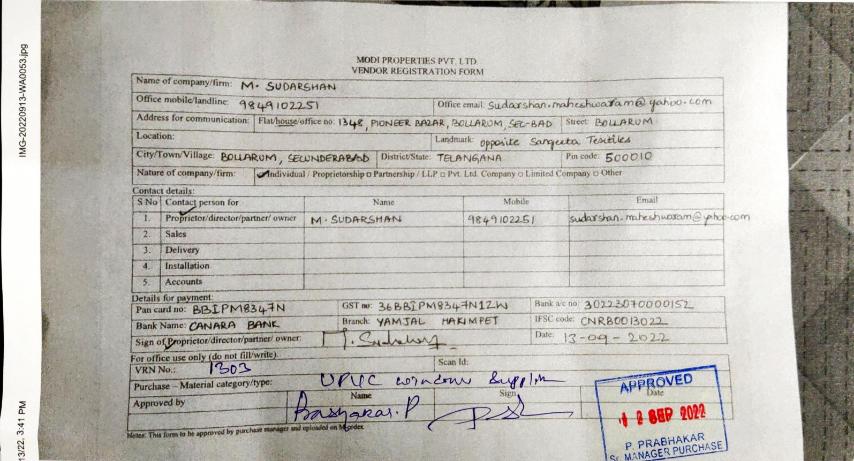 MODI PROPERTIES PVT. LTD.
VENDOR REGISTRATION FORM
Name of company/firm: M. SUDARSHAN
Office mobile/landline: 9849102251 Office email: sudarshan.maheshwaram@yahoo.com
Address for communication: Flat/house/office no: 1348, PIONEER BAZAR, BOLLARUM, SEC-BAD Street: BOLLARUM
Location: Landmark: opposite Sangeeta Textiles
City/Town/Village: BOLLARUM, SECUNDERABAD District/State: TELANGANA Pin code: 500010
Nature of company/firm: ✓Individual / Proprietorship □ Partnership / LLP □ Pvt. Ltd. Company □ Limited Company □ Other
Contact details:
S No Contact person for Name Mobile Email
1. Proprietor/director/partner/ owner M. SUDARSHAN 9849102251 sudarshan.maheshwaram@yahoo.com
2. Sales
3. Delivery
4. Installation
5. Accounts
Details for payment:
Pan card no: BBIPM8347N GST no: 36BBIPM8347N1ZW Bank a/c no: 30223070000152
Bank Name: CANARA BANK Branch: YAMJAL HAKIMPET IFSC code: CNRB0013022
Sign of Proprietor/director/partner/ owner: Date: 13-09-2022
For office use only (do not fill/write).
VRN No.: 1303 Scan Id:
Purchase – Material category/type: UPVC window Supplier
Approved by Name Sign Date
Bashakar.P
Notes: This form to be approved by purchase manager and uploaded on
APPROVED
12 SEP 2022
P. PRABHAKAR
Sr. MANAGER PURCHASE
IMG-20220913-WA0053.jpg
13/22, 3:41 PM